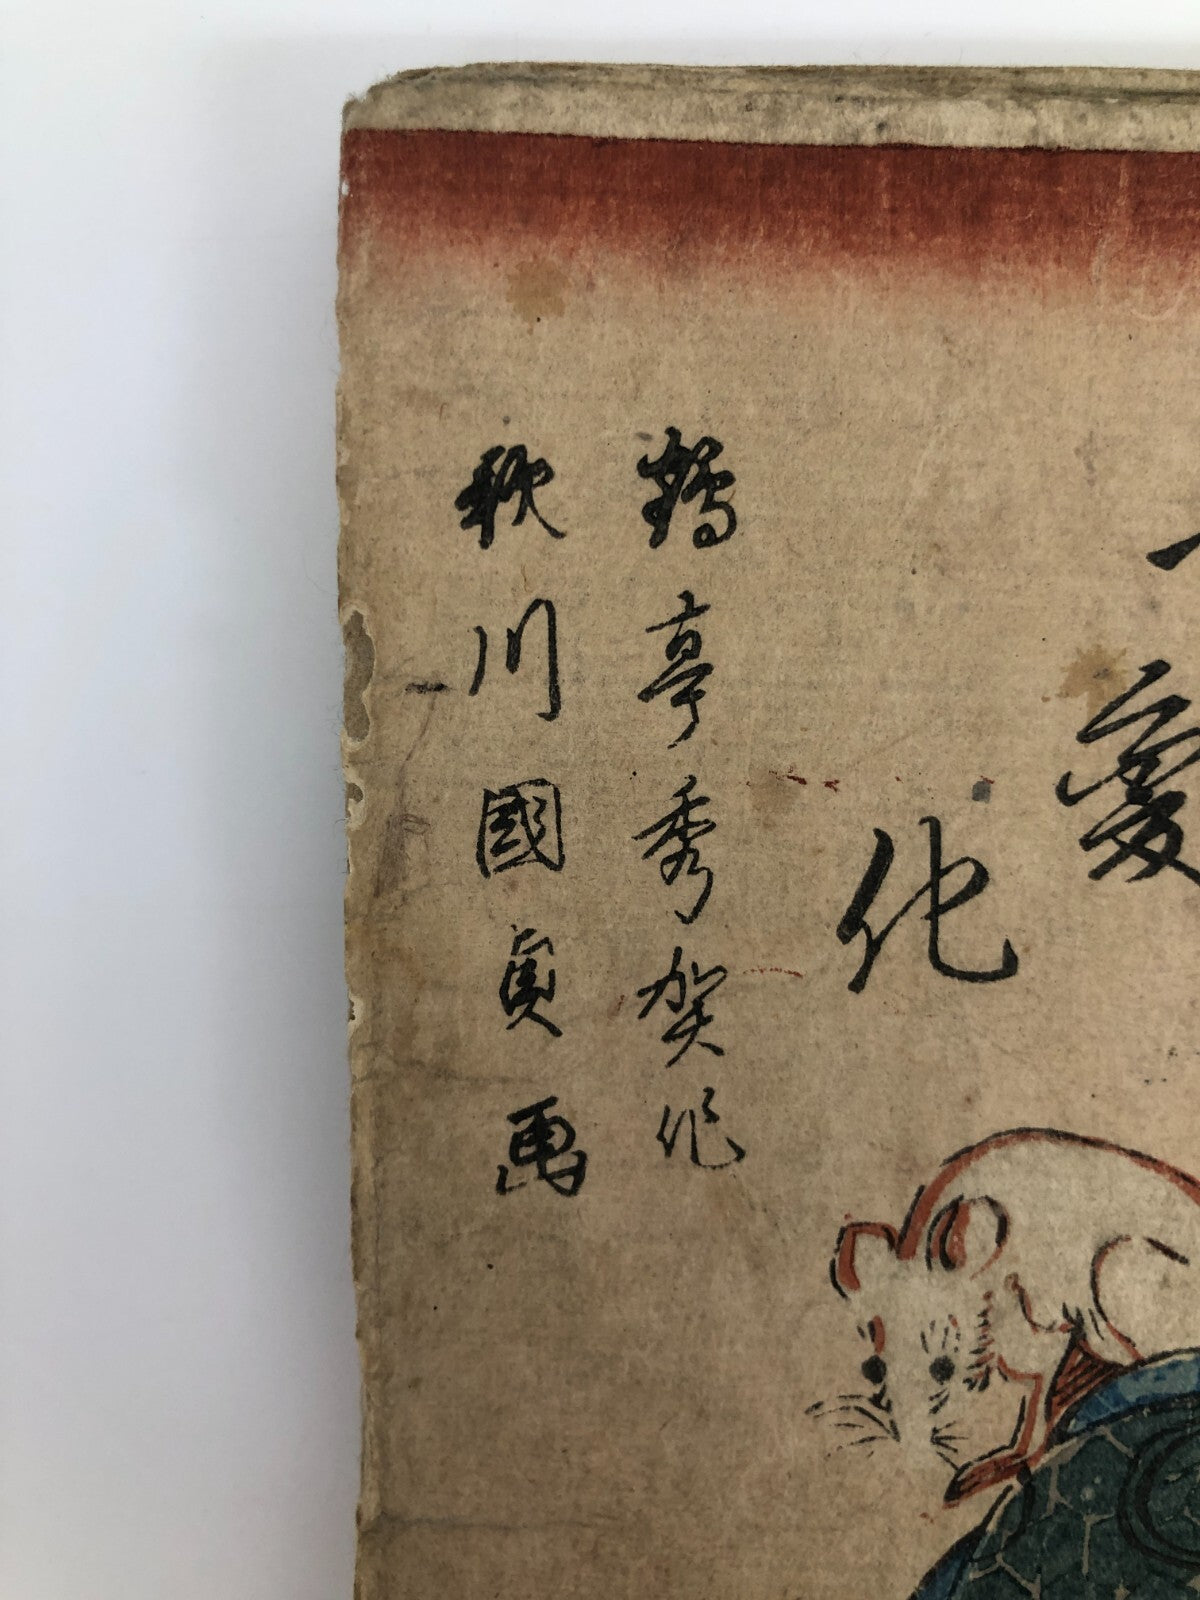 愛
化
鶴亭秀賀作
歌川國貞画